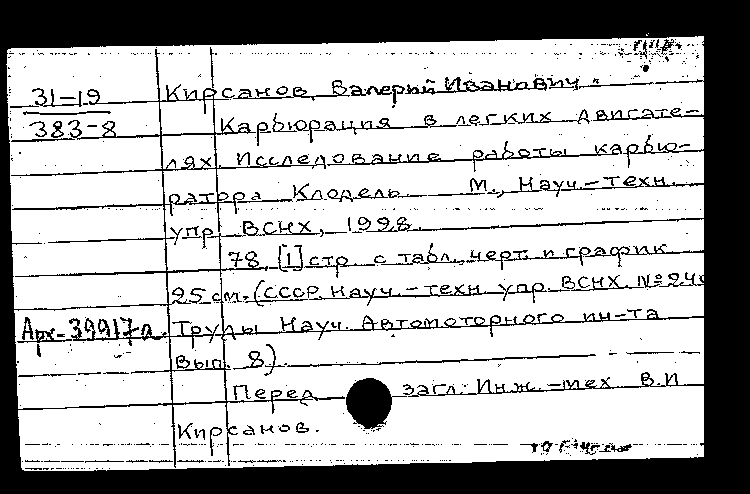 31-19
383-8
Кирсанов, Валерий Иванович.
Карбюрация в легких двигате-
лях. Исследование работы карбю-
ратора Клодель. М., Науч.-техн.
упр. ВСНХ, 1928.
78, [1] стр. с табл., черт. и график.
25 см. (СССР. Науч.-техн. упр. ВСНХ. №240
Арх-39917а. Труды Науч. Автомоторного ин-та
вып. 8).
Перед загл.: Инж.-мех. В.И.
Кирсанов.